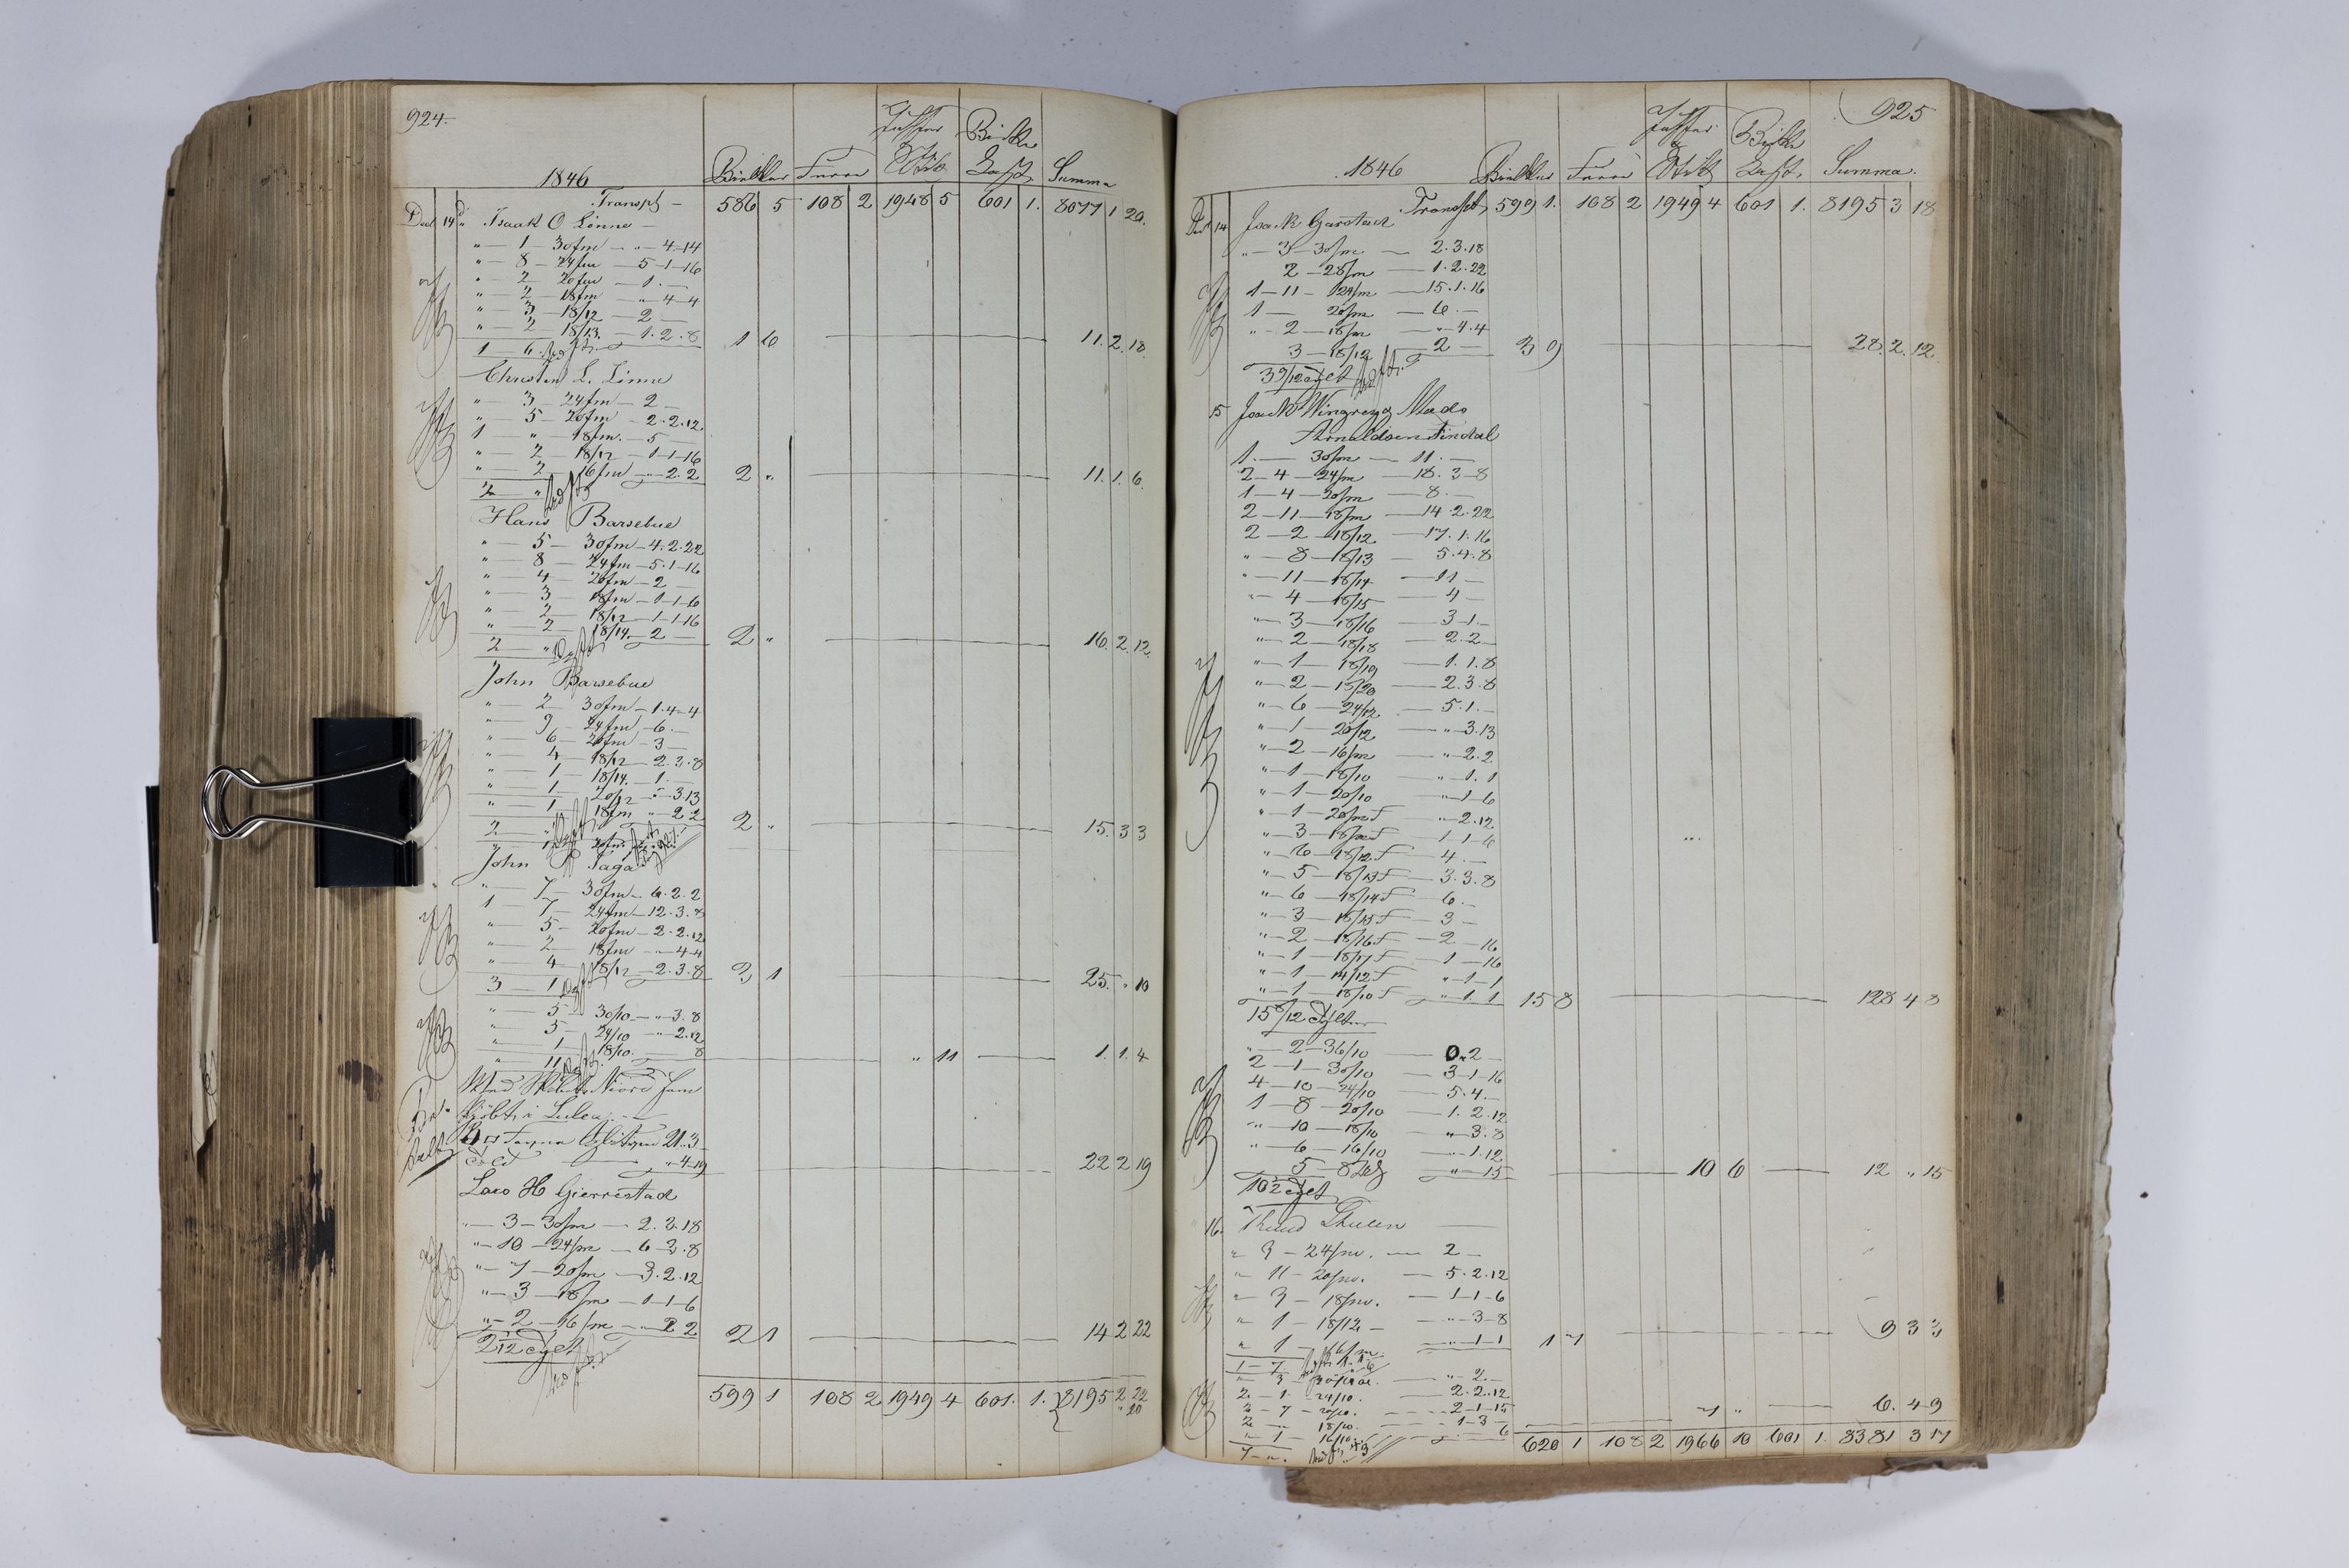 924.
1846 Bielkker Furer Juffer Stik Birke Last, Summa
Transpt 586 5 108 2 1948 5 601 1. 8077 1 20.
Decl 14 d " Isaak O Linne
" 1 30fm " 4-14
" 8 24fm 5-1-16
" 2 20fm 1. -
" 2 18fm " 4-4
" 3 18/12 2 -
" 2 18/13. 1. 2. 8
1 6 1 6 11. 2. 18.
Christen L. Linne
" 3 24fm 2 -
" 5 20fm 2. 2. 12
1 " 18fm. 5 -
" 2 18/12 1-1-16
" 2 16fm " 2. 2
2 " 2 " 11. 1. 6.
Hans Barsebue
" 5 30fm 4. 2. 22
" 8 24fm 5. 1-16
" 4 20fm 2 -
" 3 18fm 1-1-6
" 2 18/12 1-1-16
" 2 18/14. 2 -
2 " 2 " 16. 2. 12.
John Barsebue
" 2 30fm 1. 4-4
" 9 24fm 6. -
" 6 20fm 3 -
" 4 18/12 2. 3. 8
" 1 18/14. 1. -
" 1 20/12 " 3. 13
" 1 18fm " 2 2
2 " 2 " 15. 3 3
John Taga
" 7 30fm 6. 2. 2
1 7 24fm 12. 3. 8
" 5 20fm 2. 2. 12
" 2 18fm " 4-4
" 4 18/12 2. 3. 8
3 1 3 1 25. " 10
" 5 30/10 " 3. 8
" 5 24/10 " 2. 12
" 1 18/10. 8
" 11 " 11 1. 1. 4
kjöbt i Lulea
21. 3
Told " 4-19
22 2 19
Lars H Gierrestad
" 3 30fm 2. 3. 18
" 10 24fm 6 3. 8
" 7 20fm 3. 2. 12
" 3 18fm 1-1-6
" 2 16fm " 2 2
2 1/12 tylt 2 1 14 2 22
599 1 108 2 1949 4 601. 1. 8195 2 22
" 20
925
1846 Bielkker Furer Juffer Stik Birke Last, Summa.
Transpt 599 1. 108 2 1949 4 601 1. 8195 3 18
Decl 14 Isack Garstad
" 3 30fm 2. 3. 18
2 28fm 1. 2. 22
1 11 24fm 15. 1. 16
1 20fm 6. -
" 2 18fm " 4. 4
3 18/12 2 - 3 9 28. 2. 12
3 9/12 tylt
15 Isack Wingreng Mads
Arnoldsen Findal
1. 30fm 11. -
2 4 24fm 18. 3-8
1 4 20fm 8. -
2 11 18fm 14. 2. 22
2 2 18/12 17. 1. 16
" 8 18/13 5. 4. 8
" 11 18/14 11 -
" 4 18/15 4 -
" 3 18/16 3-1. -
" 2 18/18 2. 2 -
" 1 18/19 1. 1. 8
" 2 18/20 2. 3. 8
" 6 24/12 5. 1. -
" 1 20/12 " 3. 13
" 2 16fm " 2. 2
" 1 18/10 " 1. 1
" 1 20/10 " 1-6
" 1 20fm F " 2. 12
" 3 18fm F 1 1-6
" 6 18/12. F 4. -
" 5 18/13 F 3. 3. 8
" 6 18/14 F 6. -
" 3 18/15 F 3 -
" 2 18/16 F 2 16
" 1 18/17 F 1 16
" 1 14/12 F " 1-1
" 1 18/10 F " 1. 1 15 8 128 4 8
15 8/12 tylter
" 2 36/10 0 " 2 -
2 1 30/10 3-1-16
4 10 24/10 5. 4. -
1 8 20/10 1. 2. 12
" 10 18/10 " 3. 8
" 6 16/10 " 1. 12
5 " 15 10 6 12 " 15
16. Knud Thulen
" 3 24fm. 2 -
" 11 20fm. 5. 2. 12
" 3 18fm. 1-1-6
" 1 18/12 " 3-8
" 1 16fm. " 1-1 1 7 9 3 3
1 7
" 3 " 2 -
2. 1. 24/10. 2. 2. 12
2 7 20/10. 2-1-15
2 " 18/10. 1-3 -
" 1 16/10. 6 7 " 6. 4 9
7 "
620 1 108 2 1966 10 601 1. 8381 3 17